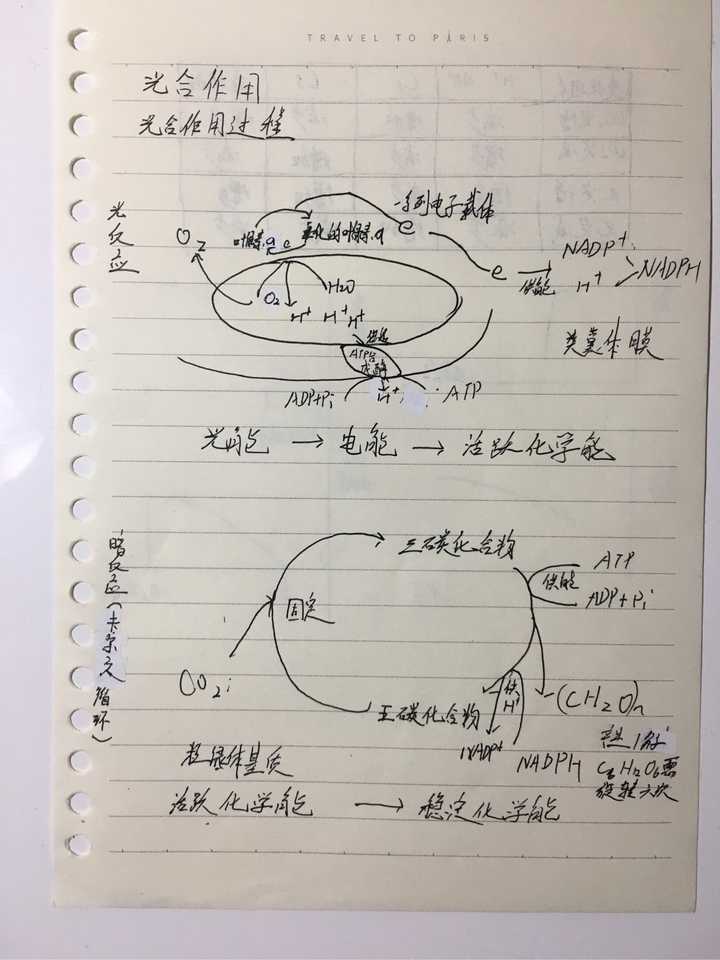 TRAVEL TO PARIS
光合作用
光合作用过程
光反应
一系列电子载体
O2
叶绿素a
e
氧化的叶绿素a
e
e
供能
NADP+
H+
NADPH
O2
H2O
H+ H+ H+
类囊体膜
ATP合成酶
ADP+Pi
H+
ATP
光能 → 电能 → 活跃化学能
暗反应(卡尔文循环)
三碳化合物
ATP
供能
ADP+Pi
固定
CO2
五碳化合物
供H
NADP+
NADPH
(CH2O)n
叶绿体基质
C6H12O6需
旋转六次
活跃化学能 → 稳定化学能